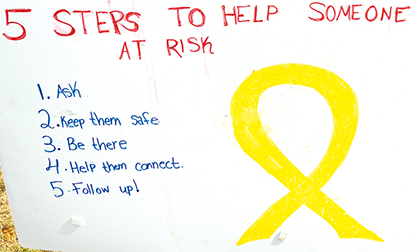 5 STEPS TO HELP SOMEONE
AT RISK
1. Ask
2. Keep them safe
3. Be there
4. Help them connect.
5. Follow up!